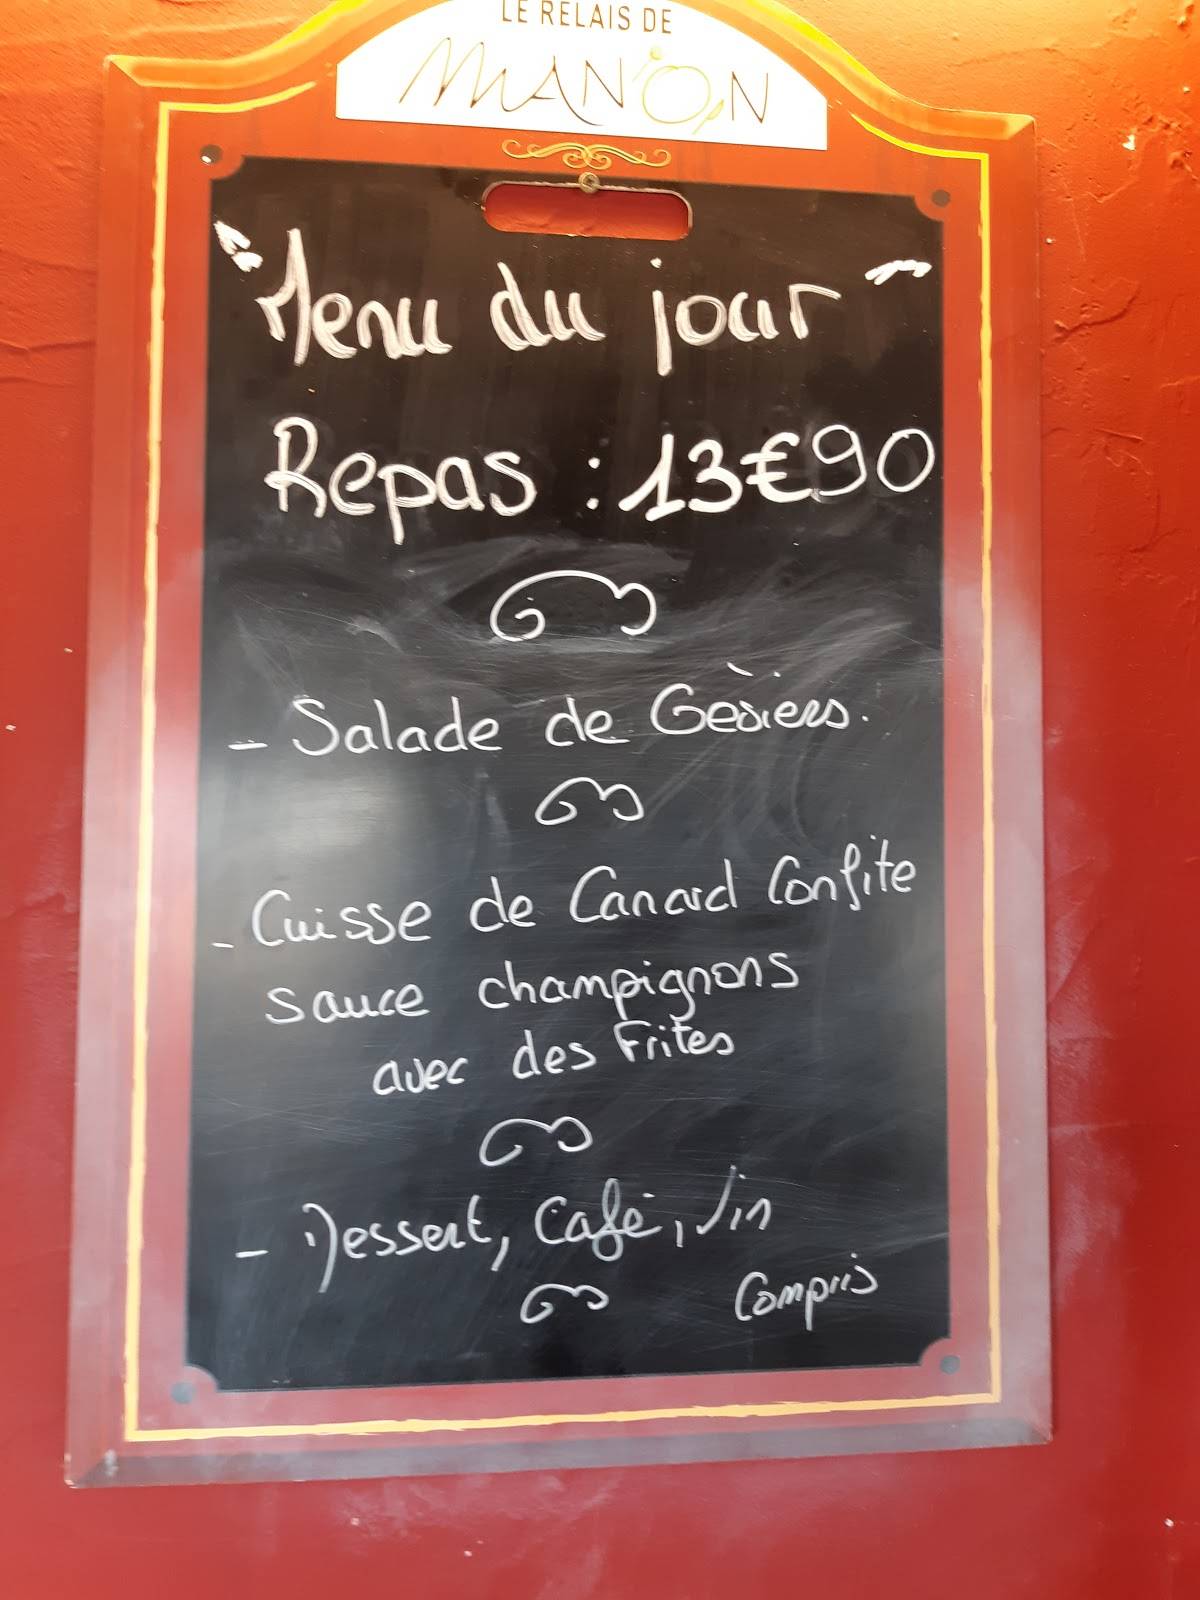 LE RELAIS DE
MANON
"Menu du jour"
Repas : 13€90
- Salade de Gèsiers.
- Cuisse de Canard Confite
sauce champignons
avec des Frites
- Dessert, Café, Vin
Compris